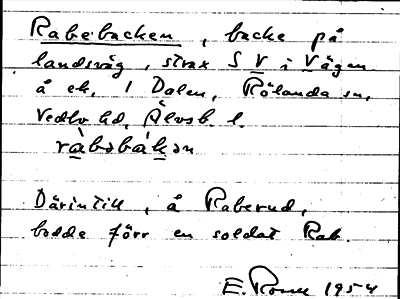 Rabebacken, backe på
landsväg, strax S V i Vägen
å ek. 1 Dalen, Rölanda sn,
Vedbo hd, Älvsb. l.
ràbəbàkən
Därintill, å Raberud,
bodde förr en soldat Rab.
E. 1954